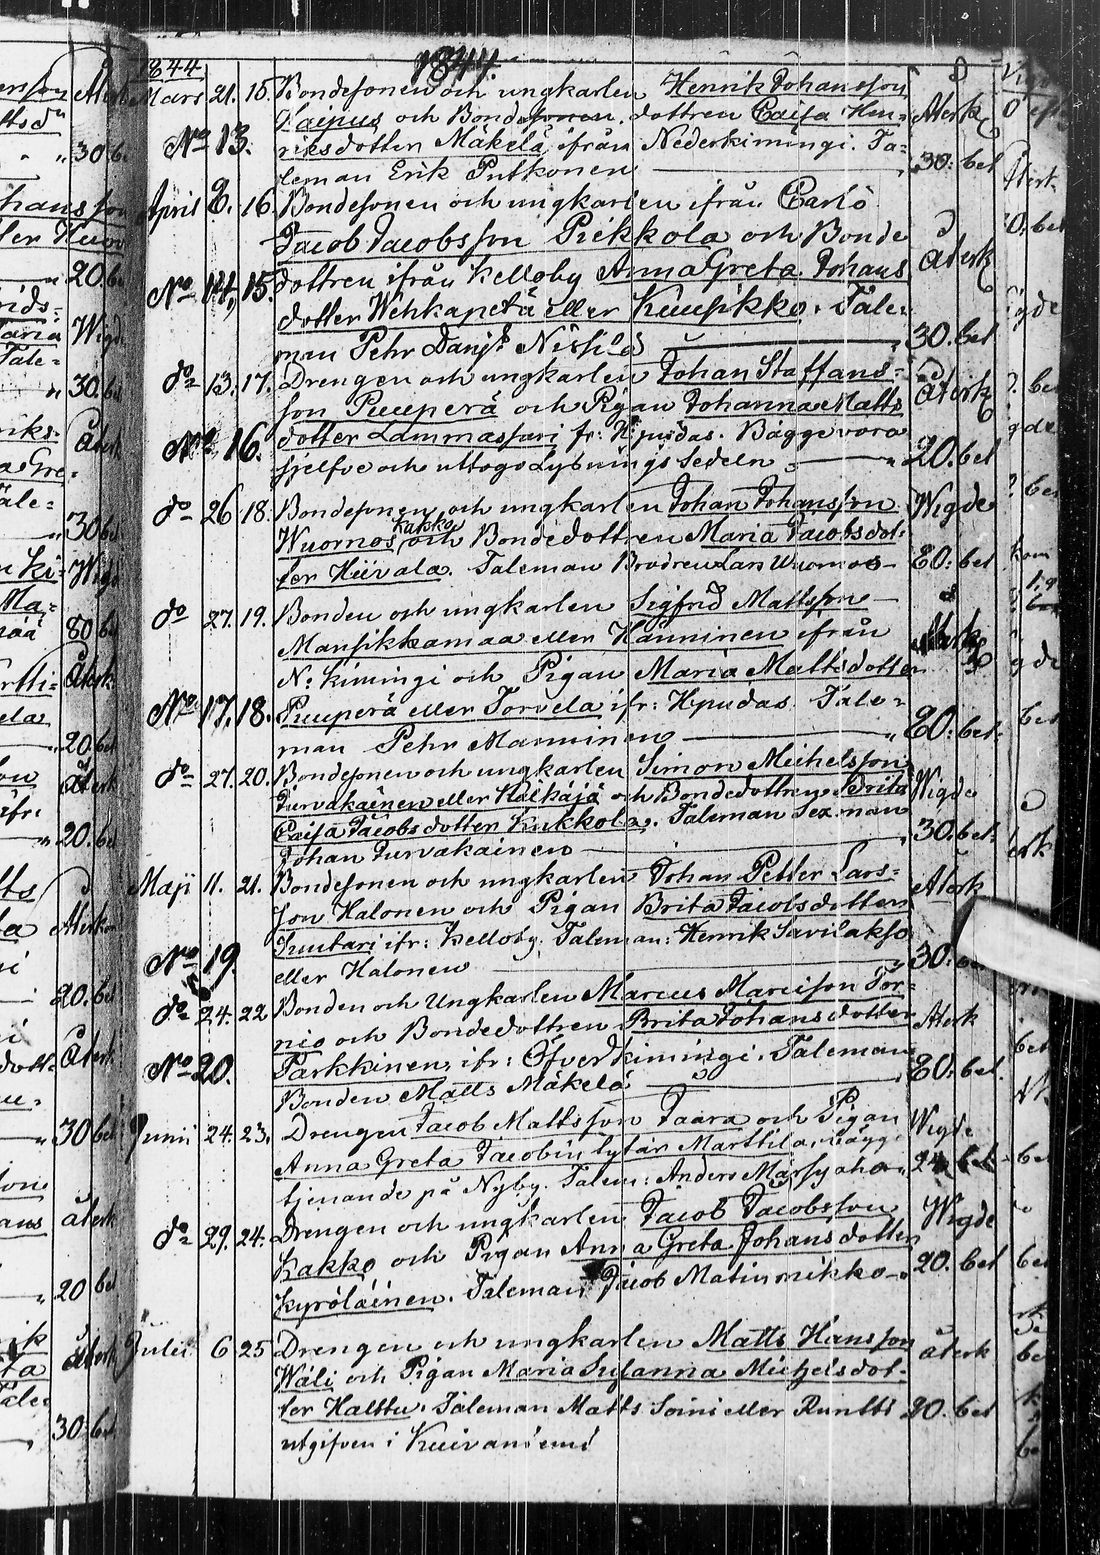 1844.
1844
Mars 21. 15. Bondesonen och ungkarlen Henrik Johansson Återk
Kaipus och Bonde dottren Caisa Hen-
No 13. riksdotter Mäkelä, ifrån Nederkimingi. Ta- 30: bet
leman Erik Putkonen
April 8. 16. Bondesonen och ungkarlen ifrån Carlö
Jacob Jacobsson Pirkkola och Bonde
No 14, 15. dottren ifrån Kelloby Anna Greta Johans Återk
dotter Wehkaperä eller Kuusikko. Tale-
man Pehr Danj. Nissilä 30. bet
do 13. 17. Drengen och ungkarlen Johan Staffans- Återk
son Puuperä och Pigan Johanna Matts
No 16. dotter Lammassari fr: Hpudas. Bägge vora
sjelfve och uttogo Lysnings Sedeln 20. bet
do 26 18. Bondesonen och ungkarlen Johan Johansson Wigde
Kakko
Wuornos och Bondedottren Maria Jacobsdot-
ter Hiivala. Taleman Brodren Lars Wuornos 80: bet
do 27. 19. Bonden och ungkarlen Sigfrid Mattsson
Mansikkamaa eller Hänninen ifrån Återk
N: Kimingi och Pigan Maria Mattsdotter
No 17. 18. Puuperä eller Torvela ifr: Hpudas. Tale-
man Pehr Manninen 80: bet.
do 27. 20. Bondesonen och ungkarlen Simon Michelsson Wigde
Turvakainen eller Haikaja och Bondedottren Brita
Caisa Jacobsdotter Kukkola. Taleman Sexman 30. bet.
Johan Turvakainen
Maji 11. 21. Bondesonen och ungkarlen Johan Petter Lars- Återk
son Halonen och Pigan Brita Jacobsdotter
Juutari ifr: Kelloby. Taleman: Henrik Savilakso
No 19. eller Halonen 30. bet
do 24. 22 Bonden och Ungkarlen Marcus Marcisson Tor- Återk
nio och Bondedottren Brita Johansdotter
No 20. Parkkinen, ifr: Öfverkimingi. Taleman 80: bet.
Bonden Matts Mäkelä
Junii 24. 23. Drengen Jacob Mattsson Taara och Pigan Wigde
Anna Greta Jacobin tytär Marttila, bägge
tjenande på Nyby. Talem: Anders 24 bet
do 29. 24. Drengen och ungkarlen Jacob Jacobsson Wigde
Kakko och Pigan Anna Greta Johansdotter
Kyröläinen. Taleman Jacob Matinmikko 20. bet
Julii 6 25 Drengen och ungkarlen Matts Hansson Återk
Wäli och Pigan Maria Susanna Michelsdot-
ter Halttu. Taleman Matts Soini eller Runtti 20. bet
utgifven i Kuivaniemi